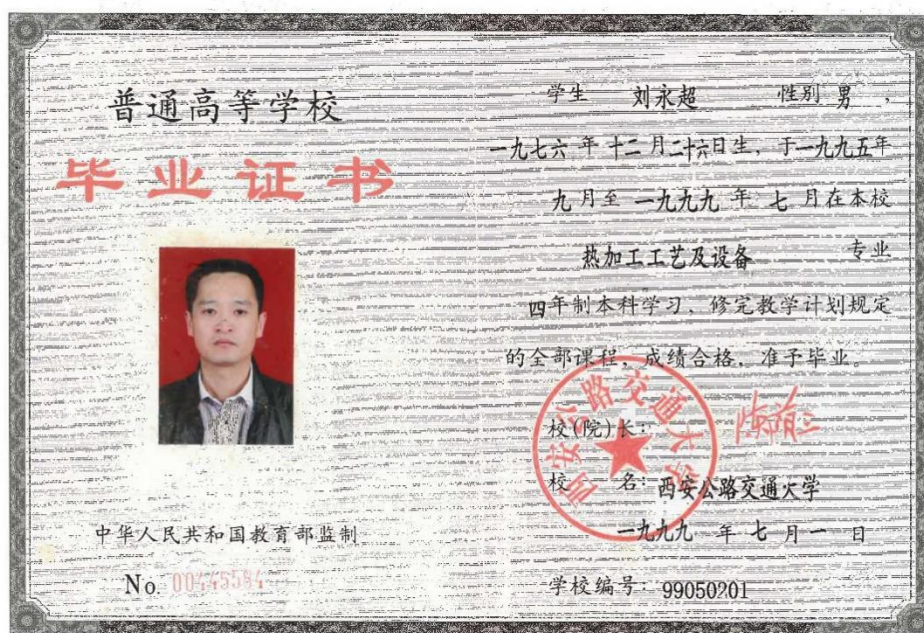 普通高等学校
毕业证书
中华人民共和国教育部监制
No. 00445584
学生 刘永超 性别 男,
一九七六年十二月二十六日生,于一九九五年
九月至一九九九年七月在本校
热加工工艺及设备 专业
四年制本科学习,修完教学计划规定
的全部课程,成绩合格,准予毕业。
西安公路交通大学
校(院)长:
校名:西安公路交通大学
一九九九年七月一日
学校编号:99050201